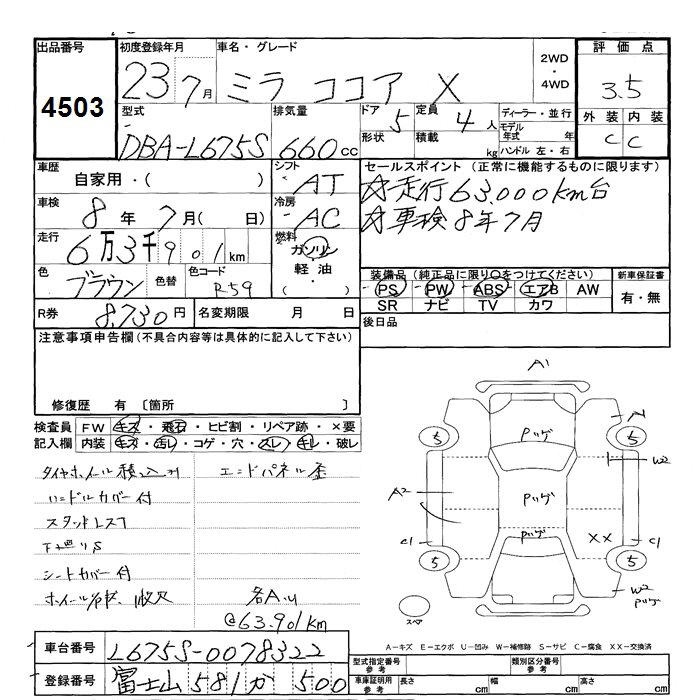 出品番号 初度登録年月 車名・グレード 評価点
4503 23 7月 ミラ ココア X 2WD・4WD 3.5
外装 内装
C C
型式 排気量 ドア 5 定員 4人 ディーラー・並行
DBA-L675S 660cc 形状 積載 kg モデル年式 年
ハンドル 左・右
車歴 自家用・( ) シフト AT
セールスポイント (正常に機能するものに限ります)
☆走行63,000km台
☆車検8年7月
車検 8年 7月( 日) 冷房 AC
走行 6万3千901km 燃料 ガソリン 軽油・( )
色 ブラウン 色替 色コード R59
装備品(純正品に限り○をつけてください) 新車保証書
PS PW ABS エアB AW 有・無
SR ナビ TV カワ
R券 8,730円 名変期限 月 日
後日品
注意事項申告欄(不具合内容等は具体的に記入して下さい)
修復歴 有 〔箇所 〕
検査員記入欄 FW キズ・飛石・ヒビ割・リペア跡・×要
内装 キズ・汚レ・コゲ・穴・スレ・キレ・破レ
タイヤホイール積込 エンドパネル歪
ハンドルカバー付
スタッドレス
下廻りS
シートカバー付
各AU
@63,901km
A1
A1
5 5
W2
A2
C1 XX C1
5 5
W2
スペア
A-キズ E-エクボ U-凹み W-補修跡 S-サビ C-腐食 XX-交換済
車台番号 L675S-0078322
登録番号 富士山 581 か 500
型式指定番号 参考 類別区分番号 参考
車庫証明用 参考 長さ cm 幅 cm 高さ cm